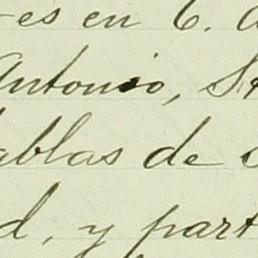 -es en C.
Antonio, S
ablas de
d, y part